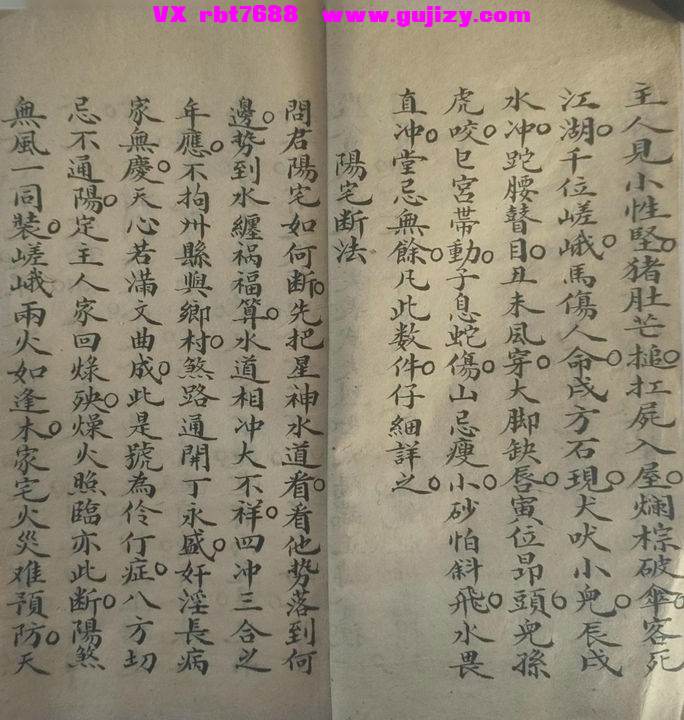 VX rbt7688 www.gujizy.com
主人見小性堅。猪肚芒搥。扛屍入屋。爛棕破傘。客死
江湖。千位嵯峨。馬傷人命。戌方石現。犬吠小兒。辰戌
水冲。跎腰瞽目。丑未風穿。大脚缺唇。寅位昂頭。兒孫
虎咬。巳宮帶動。子息蛇傷。山忌瘦小。砂怕斜飛。水畏
直冲。堂忌無餘。凡此数件。仔細詳之。
陽宅断法
問君陽宅如何断。先把星神水道看。看他势落到何
邊。势到水纏祸福算。水道相冲大不祥。四冲三合之
年應。不拘州縣與鄉村。煞路通開丁永盛。奸淫長病
家無慶。天心若滿文曲成。此是號為伶仃症。八方切
忌不通陽。定主人家回祿殃。燥火照臨亦此断。陽煞
無風一同裝。嵯峨兩火如逢木。家宅火災难預防。天